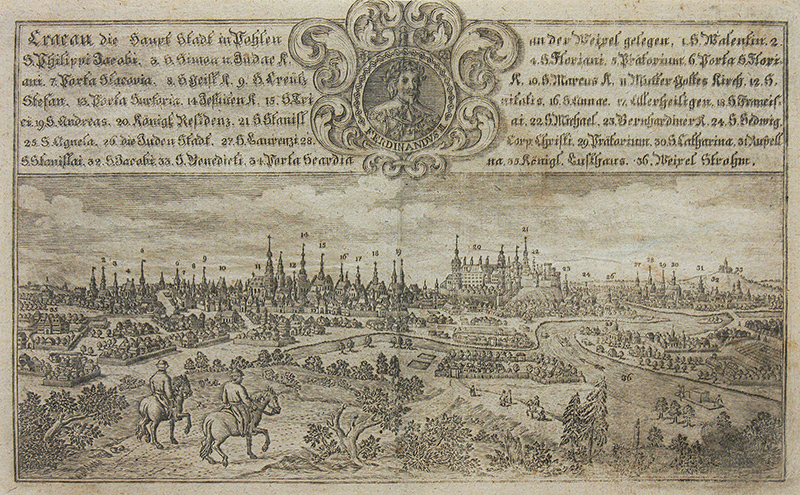 Cracau die Haupt Stadt in Pohlen an der Weixel gelegen. 1. S. Walentin. 2.
S. Philippi Jacobi. 3. S. Simon u. Judae K. 4. S. Floriani. 5. Prätorium. 6. Porta S. Flori-
ani. 7. Porta Slacovia. 8. S. Geist K. 9. S. Creutz K. 10. S. Marcus K. 11 Mutter Gottes Kirch. 12. S.
Stefan. 13. Porta Sutoria. 14 Jesuiten K. 15. S. Tri nitatis. 16. S. Annae. 17. Allerheiligen. 18. S. Francis-
ci. 19. S. Andreas. 20. Königl. Residenz. 21. S. Stanisl ai. 22 S. Michael. 23. Bernhardiner K. 24. S. Hedwig.
25. S. Agnela. 26. die Juden Stadt. 27. S. Laurenzi. 28. Corp. Christi. 29. Prätorium. 30. S. Catharina. 31. Rupell
S. Stanislai. 32. S. Jacobi. 33. S. Benedicti. 34. Porta Scardia na. 35. Königl. Lusthaus. 36. Weixel Strohm.
FERDINANDVS II
1 2 3 4 5 6 7 8 9 10 11 12 13 14 15 16 17 18 19 20 21 22 23 24 26 27 28 29 30 31 32 33
35
36